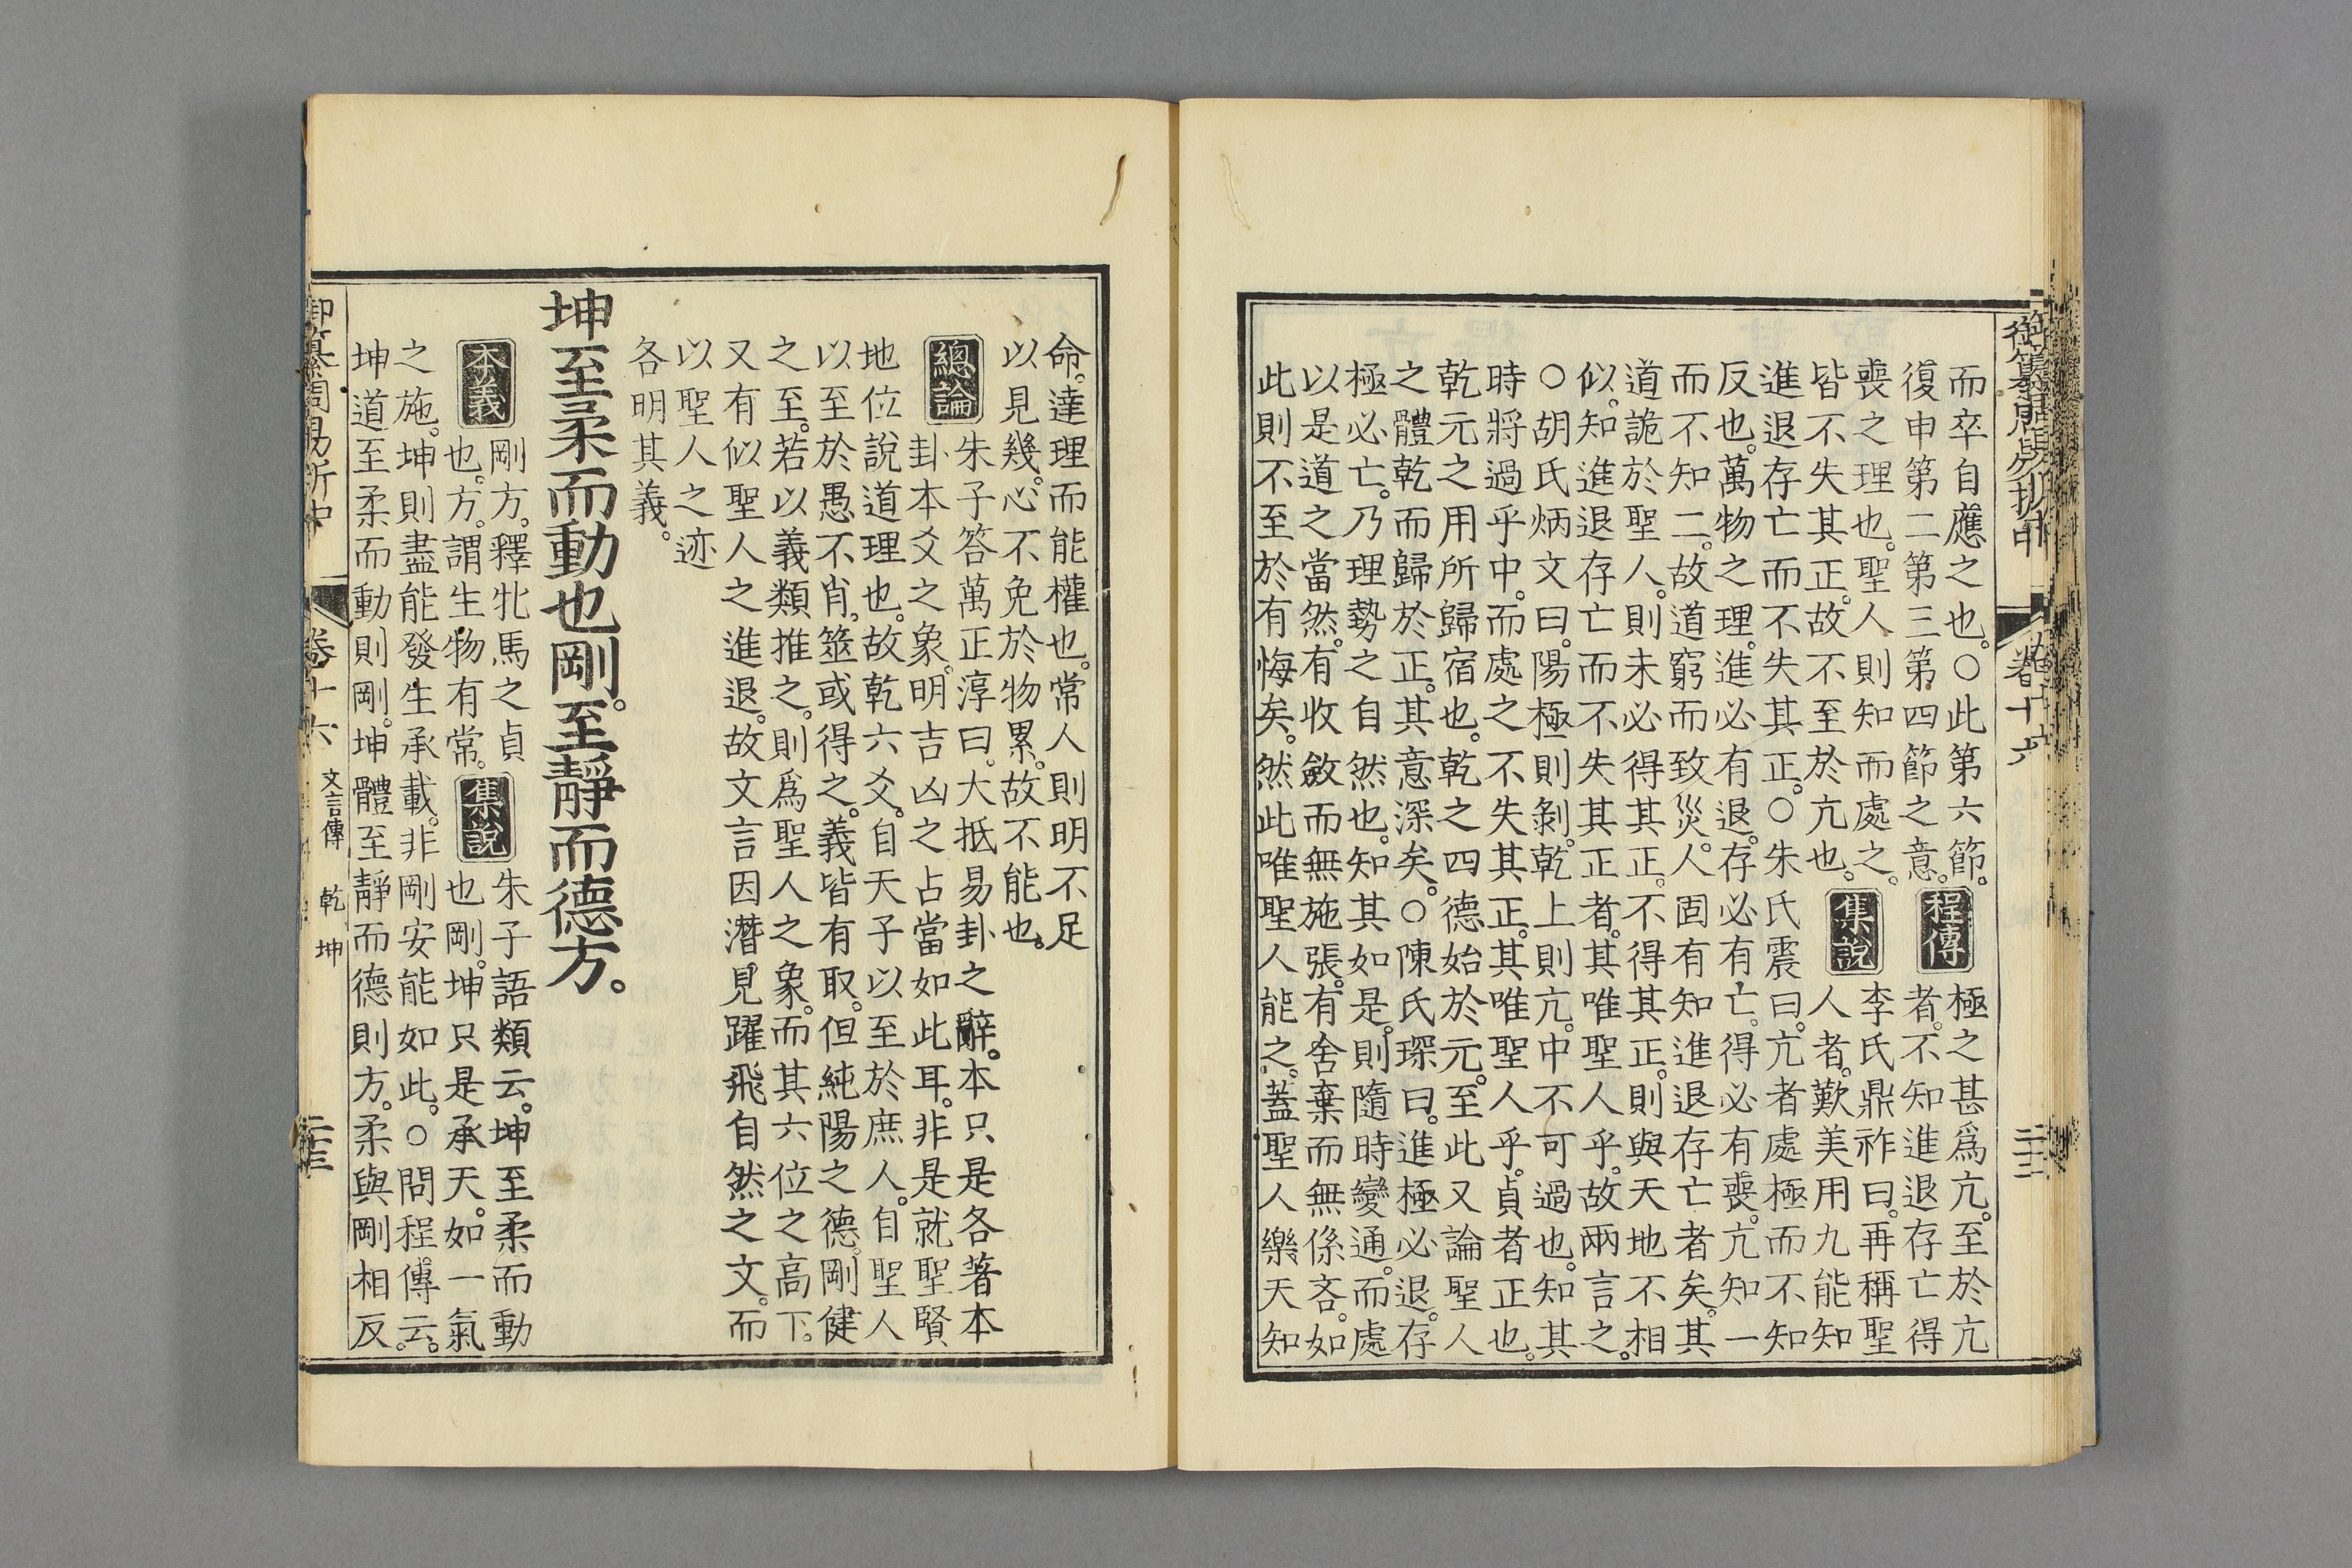 御纂周易折中 卷十六 二十二
而卒自應之也。○此第六節。程傳 極之甚爲亢。至於亢
復申第二第三第四節之意。者。不知進退存亡得
喪之理也。聖人則知而處之。李氏鼎祚曰。再稱聖
皆不失其正。故不至於亢也。集說 人者。歎美用九能知
進退存亡而不失其正。○朱氏震曰。亢者處極而不知
反也。萬物之理。進必有退。存必有亡。得必有喪。亢知一
而不知二。故道窮而致災。人固有知進退存亡者矣。其
道詭於聖人。則未必得其正。不得其正。則與天地不相
似。知進退存亡而不失其正者。其唯聖人乎。故兩言之。
○胡氏炳文曰。陽極則剝。乾上則亢。中不可過也。知其
時將過乎中。而處之不失其正。其唯聖人乎。貞者正也。
乾元之用所歸宿也。乾之四德始於元。至此又論聖人
之體乾而歸於正。其意深矣。○陳氏琛曰。進極必退。存
極必亡。乃理勢之自然也。知其如是。則隨時變通。而處
以是道之當然。有收斂而無施張。有舍棄而無係吝。如
此則不至於有悔矣。然此唯聖人能之。蓋聖人樂天知
命。達理而能權也。常人則明不足
以見幾。心不免於物累。故不能也。
總論 朱子答萬正淳曰。大抵易卦之辭。本只是各著本
卦本爻之象。明吉凶之占當如此耳。非是就聖賢
地位說道理也。故乾六爻。自天子以至於庶人。自聖人
以至於愚不肖。筮或得之。義皆有取。但純陽之德。剛健
之至。若以義類推之。則爲聖人之象。而其六位之高下。
又有似聖人之進退。故文言因潛見躍飛自然之文。而
以聖人之迹
各明其義。
坤至柔而動也剛。至靜而德方。
本義 剛方。釋牝馬之貞
也。方。謂生物有常。集說 朱子語類云。坤至柔而動
也剛。坤只是承天。如一氣
之施。坤則盡能發生承載。非剛安能如此。○問程傳云。
坤道至柔而動則剛。坤體至靜而德則方。柔與剛相反。
御纂周易折中 卷十六 文言傳 乾 坤 二十三